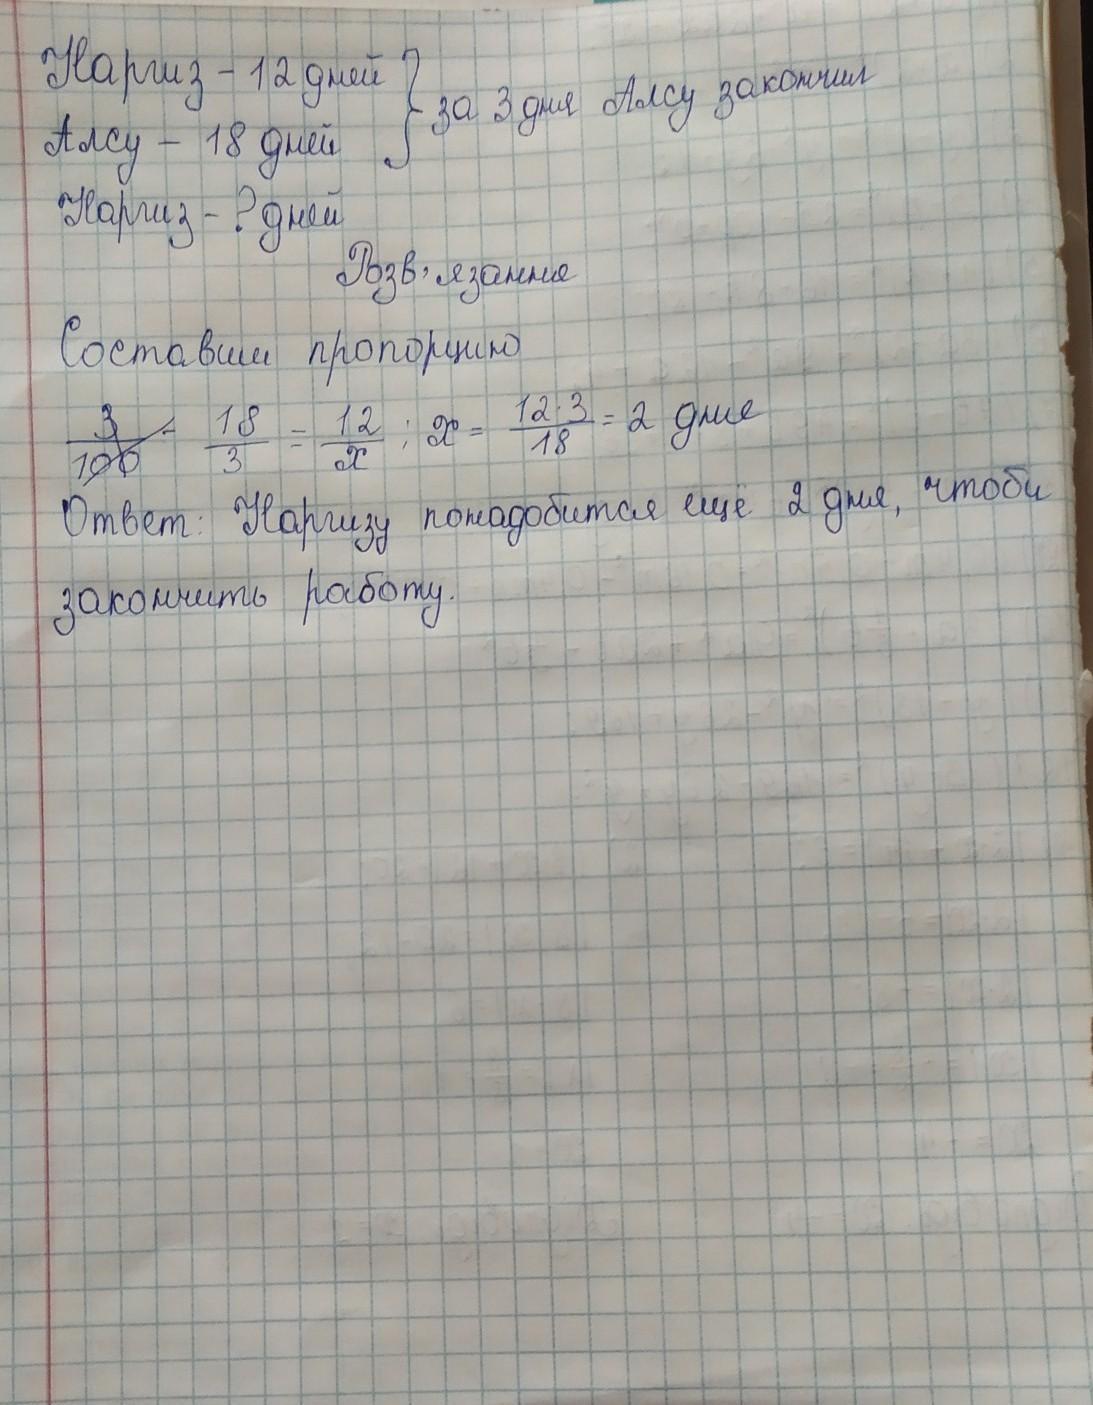 Наргиз - 12 дней } за 3 дня Алсу закончил
Алсу - 18 дней
Наргиз - ? дней
Розв'язання
Составим пропорцию
3/100 - 18/3 = 12/x ; x = 12·3/18 = 2 дня
Ответ: Наргизу понадобится ещё 2 дня, чтоби
закончить работу.